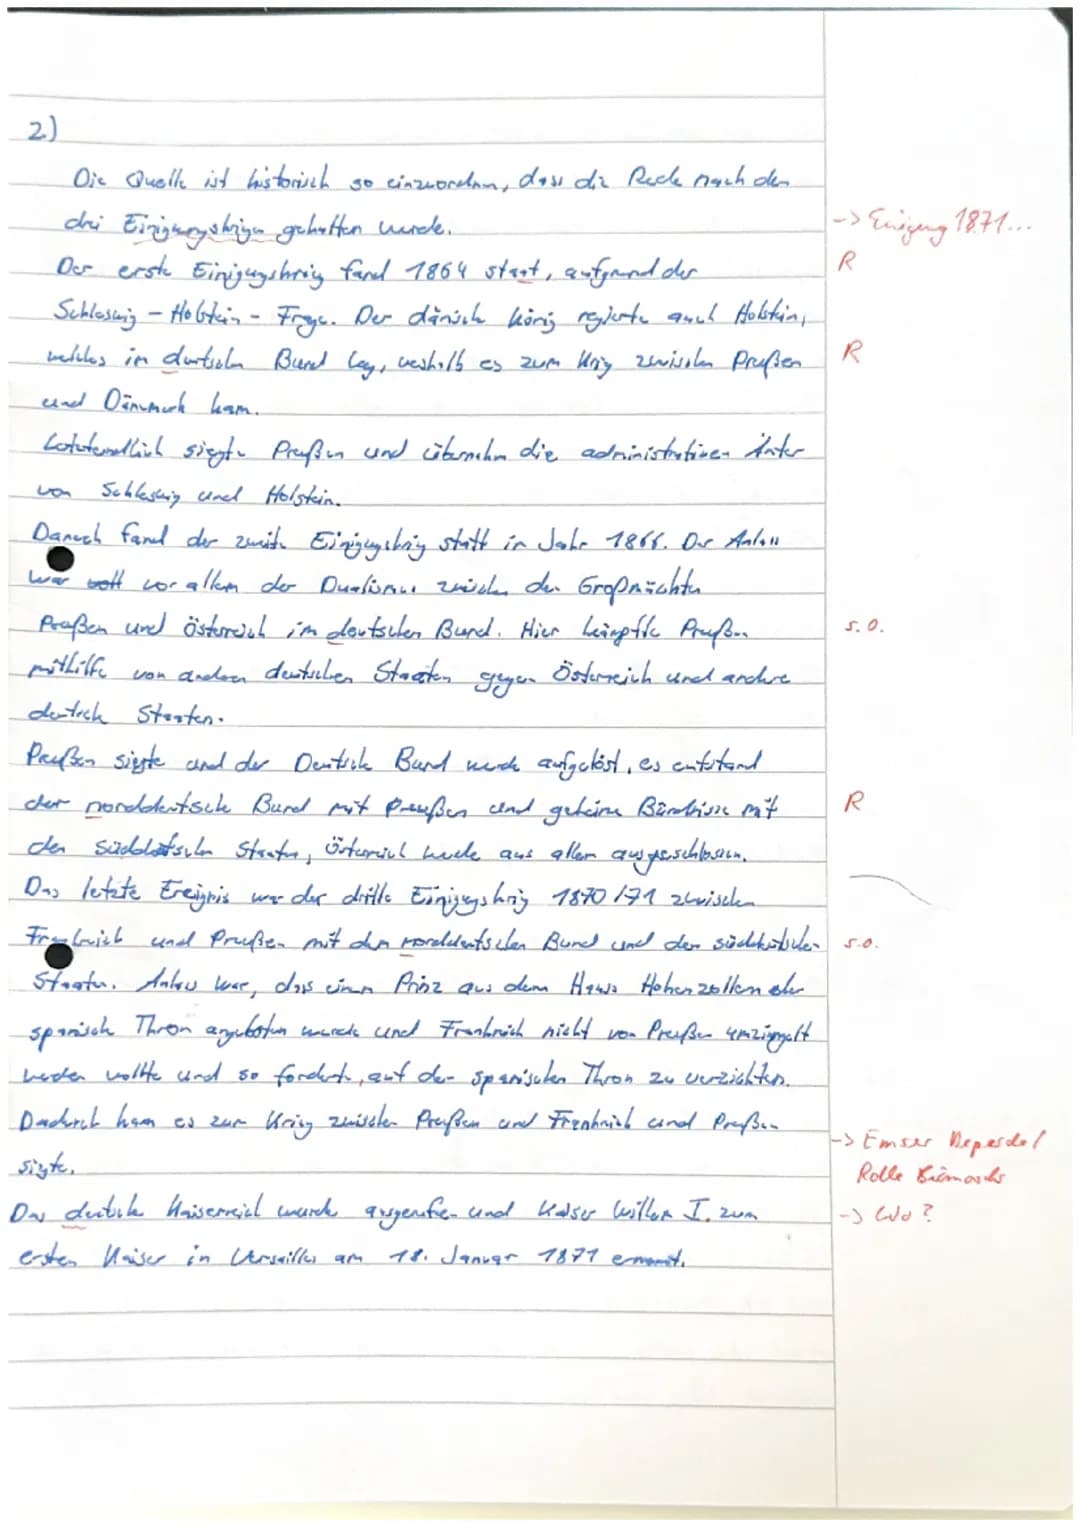 2)
Die Quelle ist historisch so einzuordnen, dass die Rede nach den
drei Einigungskriegen gehalten wurde.
-> Einigung 1871...
Der erste Einigungskrieg fand 1864 statt, aufgrund der
R
Schleswig - Holstein - Frage. Der dänische König regierte auch Holstein,
welches im deutschen Bund lag, weshalb es zum Krieg zwischen Preußen
R
und Dänemark kam.
Letztendlich siegte Preußen und übernahm die administrativen Ämter
von Schleswig und Holstein.
Danach fand der zweite Einigungskrieg statt im Jahr 1866. Der Anlass
war vor allem der Dualismus zwischen den Großmächten
Preußen und Österreich im deutschen Bund. Hier kämpfte Preußen
s.o.
mithilfe von anderen deutschen Staaten gegen Österreich und andere
deutsche Staaten.
Preußen siegte und der Deutsche Bund wurde aufgelöst, es entstand
der norddeutsche Bund mit Preußen und geheime Bündnisse mit
R
den süddeutschen Staaten, Österreich wurde aus allem ausgeschlossen.
Das letzte Ereignis war der dritte Einigungskrieg 1870/71 zwischen
Frankreich und Preußen mit dem norddeutschen Bund und den süddeutschen
s.o.
Staaten. Anlass war, dass einem Prinz aus dem Haus Hohenzollern der
spanische Thron angeboten wurde und Frankreich nicht von Preußen umzingelt
werden wollte und so forderte, auf den spanischen Thron zu verzichten.
Dadurch kam es zum Krieg zwischen Preußen und Frankreich und Preußen
-> Emser Depesche/
siegte.
Rolle Bismarcks
Das deutsche Kaiserreich wurde ausgerufen und Kaiser Wilhelm I. zum
-> Wo?
ersten Kaiser in Versailles am 18. Januar 1871 ernannt.